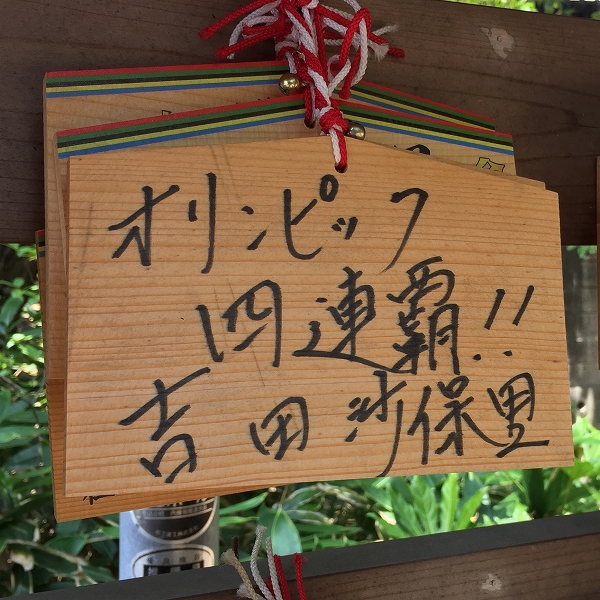 オリンピック
四連覇!!
吉田沙保里